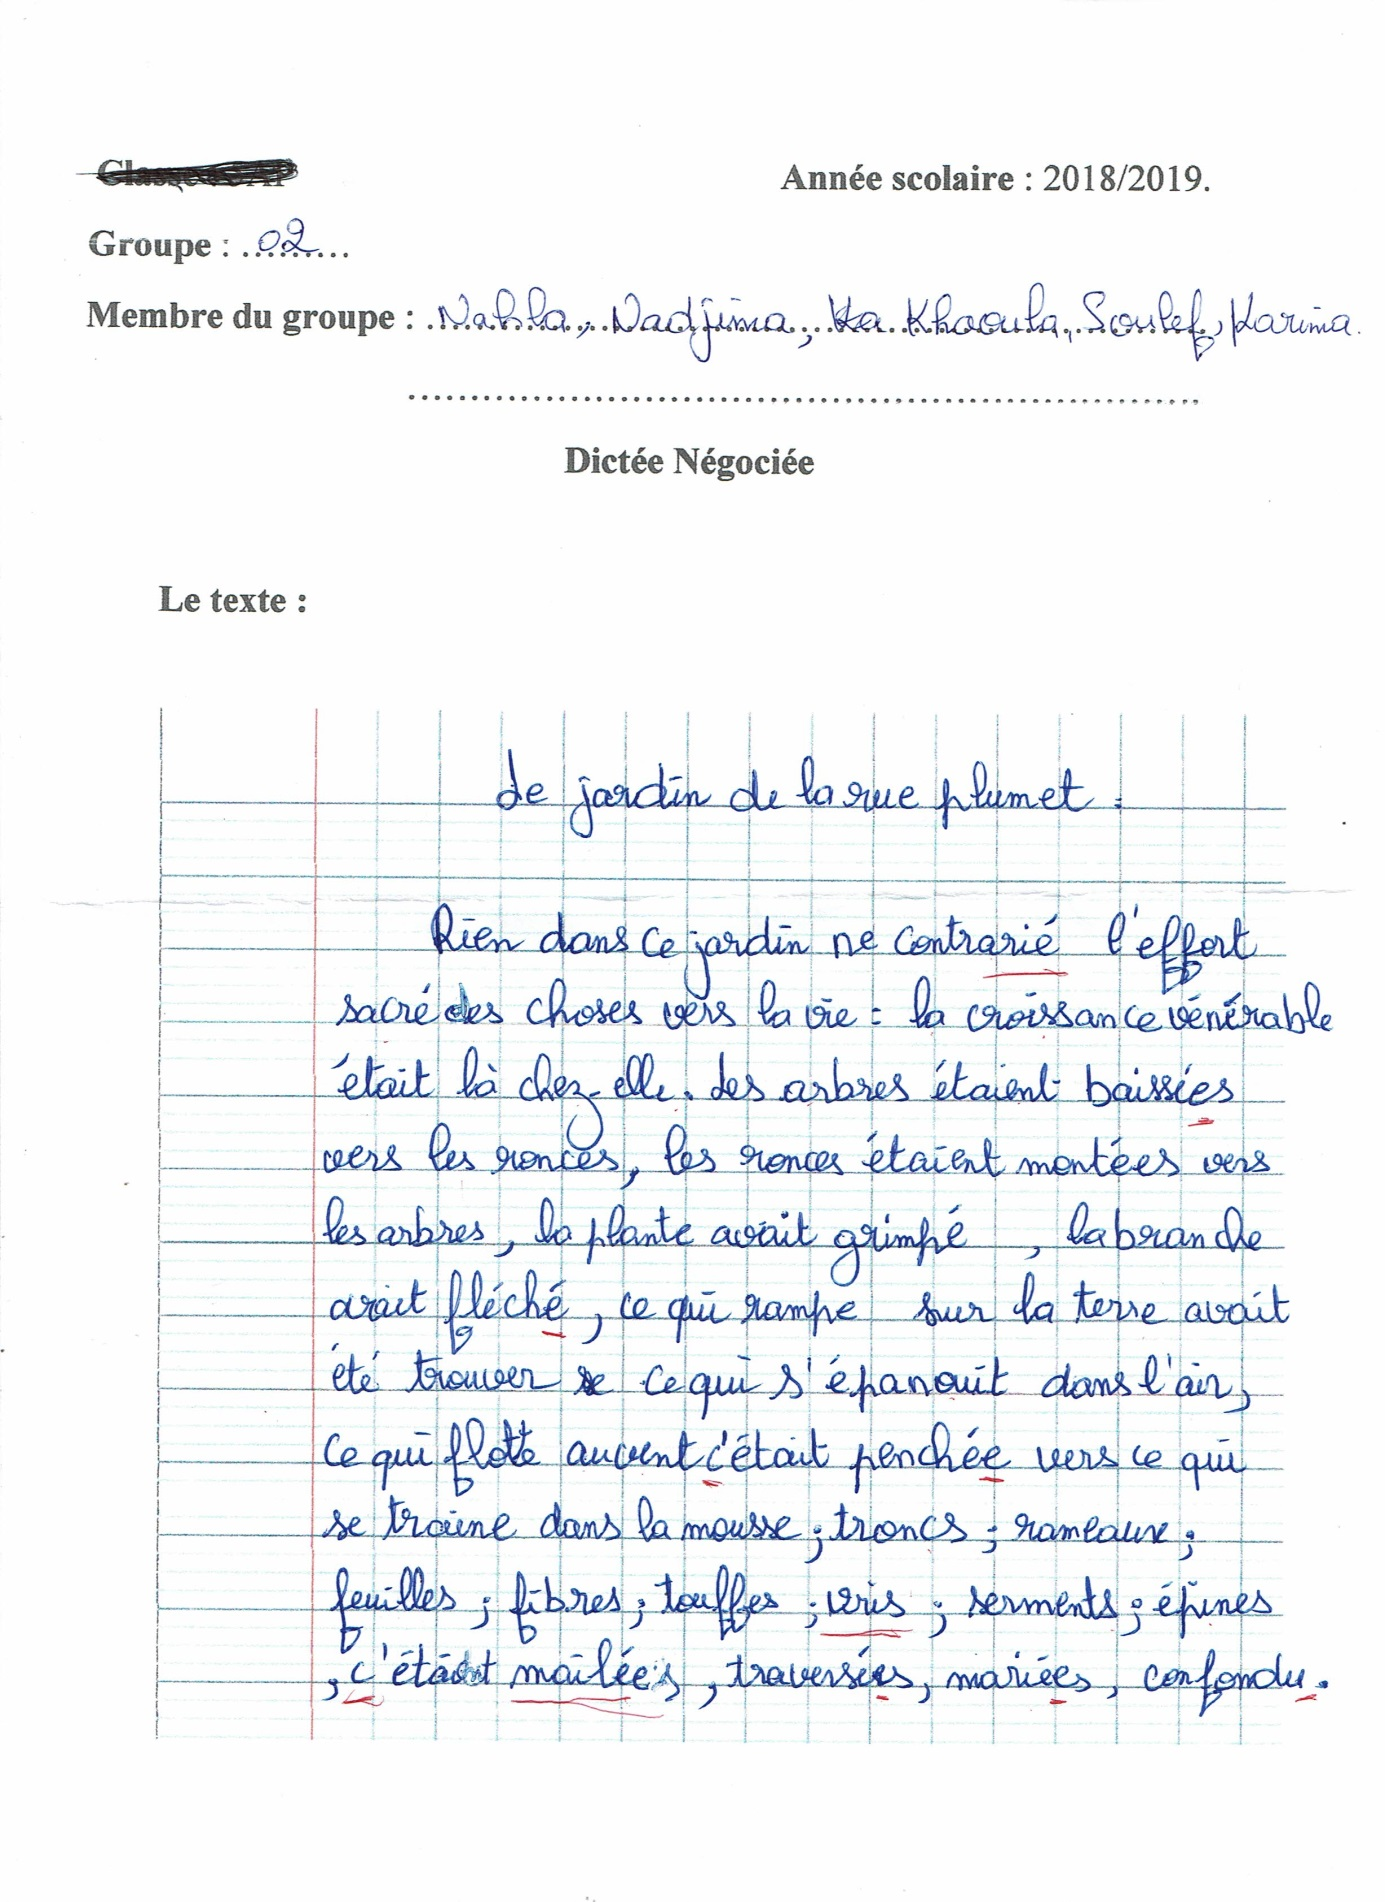 Année scolaire : 2018/2019.
Groupe : 02
Membre du groupe : Nahla, Nadjima, Khaoula, Soulef, Karima.
Dictée Négociée
Le texte :
Le jardin de la rue plumet.
Rien dans ce jardin ne contrarié l'effort
sacré des choses vers la vie : la croissance vénérable
était là chez-elle. des arbres étaient baissées
vers les ronces, les ronces étaient montées vers
les arbres, la plante avait grimpé , la branche
avait fléché, ce qui rampe sur la terre avait
été trouver ce qui s'épanouit dans l'air,
ce qui flotte au vent c'était penchée vers ce qui
se traine dans la mousse ; troncs ; rameaux ;
feuilles ; fibres ; touffes ; vris ; serments ; épines
, c'étaient mailées, traversées, mariées, confondu.